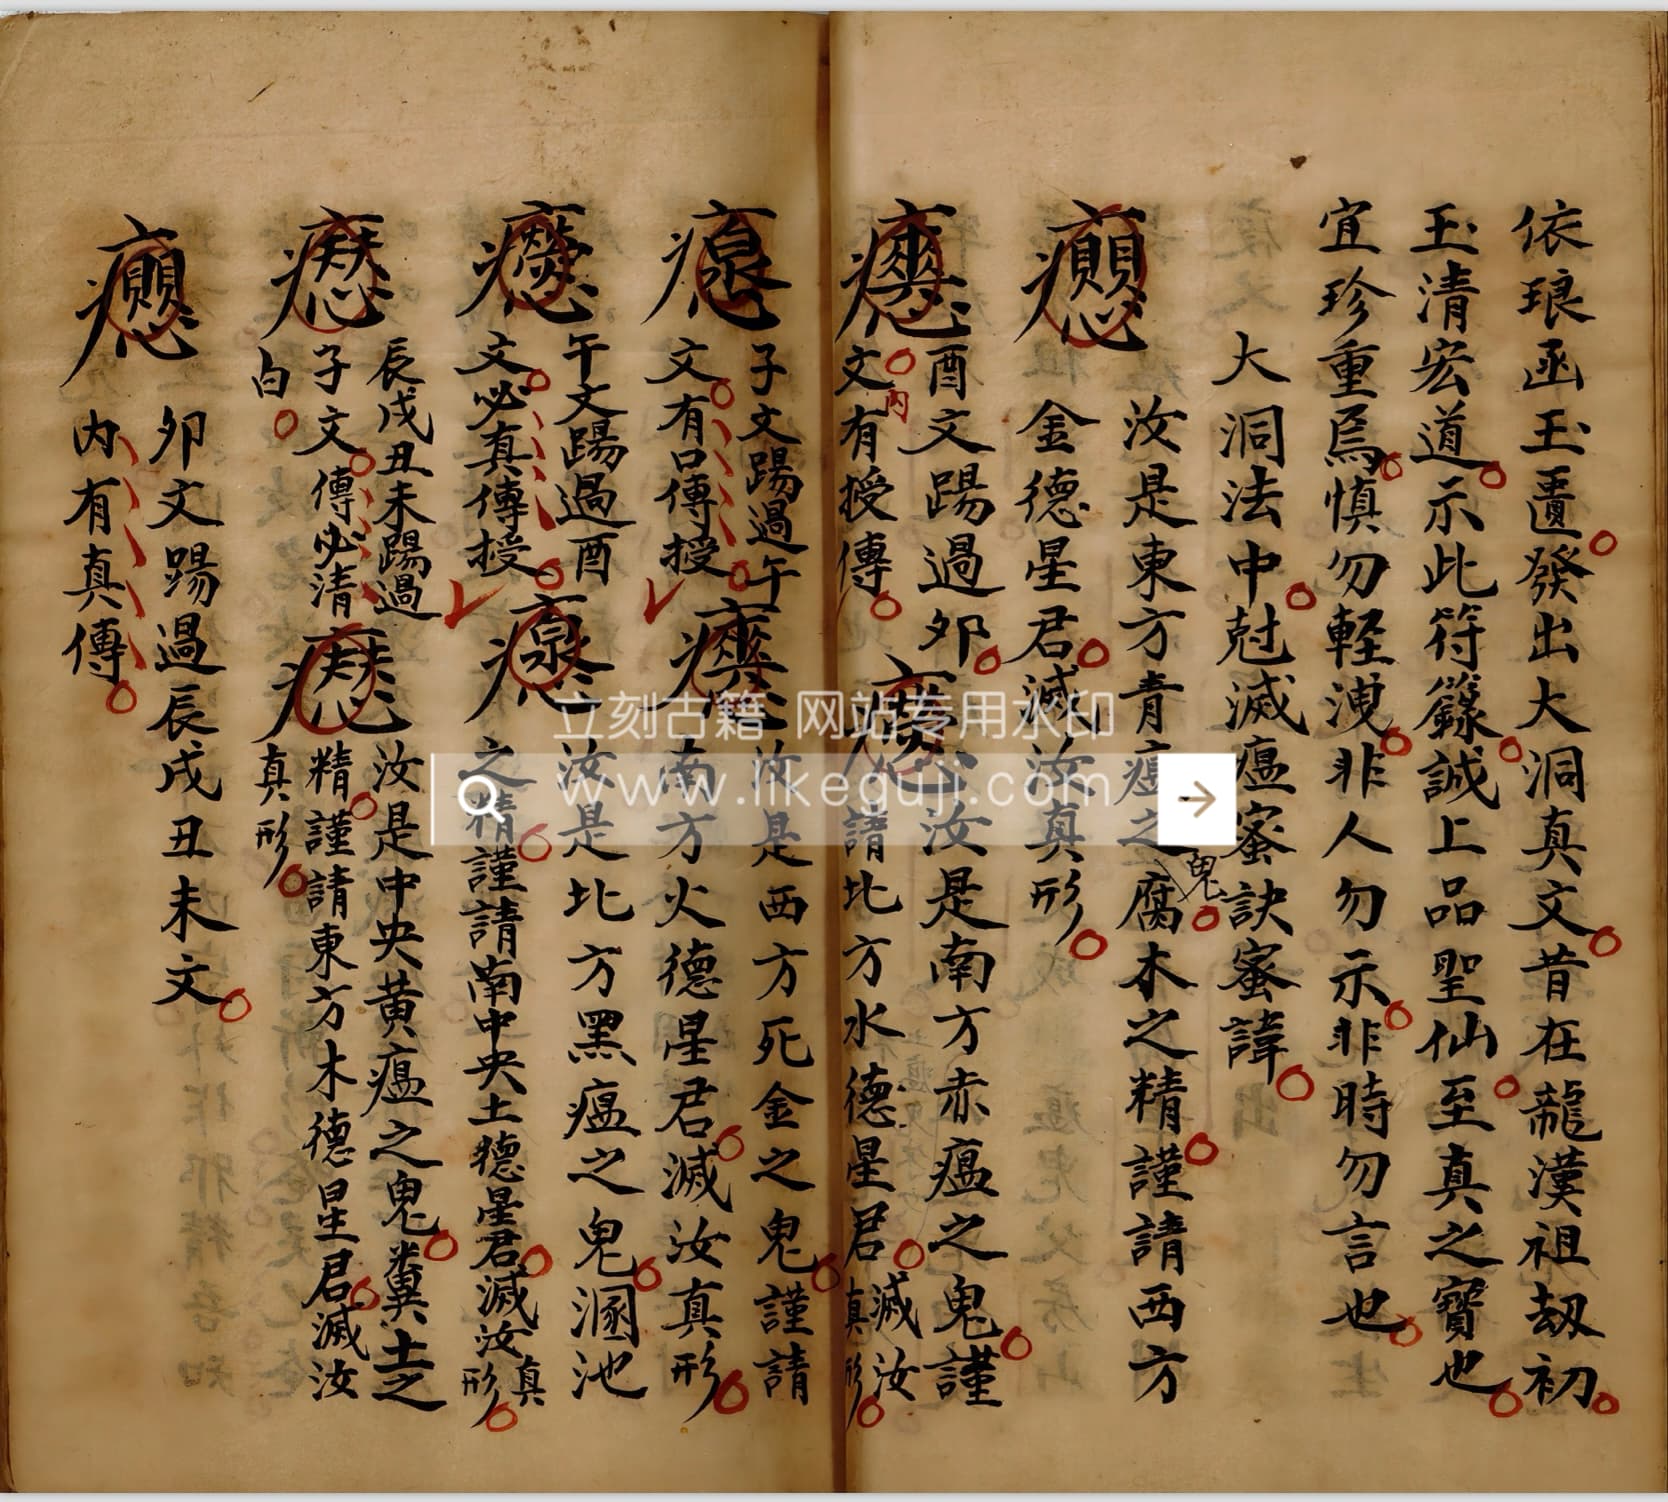 依琅函玉匱發出大洞真文昔在龍漢祖刼初
玉清宏道示此符籙誠上品聖仙至真之寶也
宜珍重焉慎勿輕洩非人勿示非時勿言也
大洞法中尅滅瘟蜜訣蜜諱
汝是東方青瘟之鬼腐木之精謹請西方
金德星君滅汝真形
酉文踢過夘
文內有授傳
汝是南方赤瘟之鬼謹
請北方水德星君滅汝真形
子文踢過午
文有口傳授
汝是西方死金之鬼謹請
南方火德星君滅汝真形
午文踢過酉
文必真傳授
汝是北方黑瘟之鬼溷池
之精謹請南中央土德星君滅汝真形
辰戌丑未踢過
子文傳必清
白
汝是中央黄瘟之鬼糞土之
精謹請東方木德星君滅汝
真形
夘文踢過辰戌丑未文
内有真傳
立刻古籍 网站专用水印
www.likeguji.com